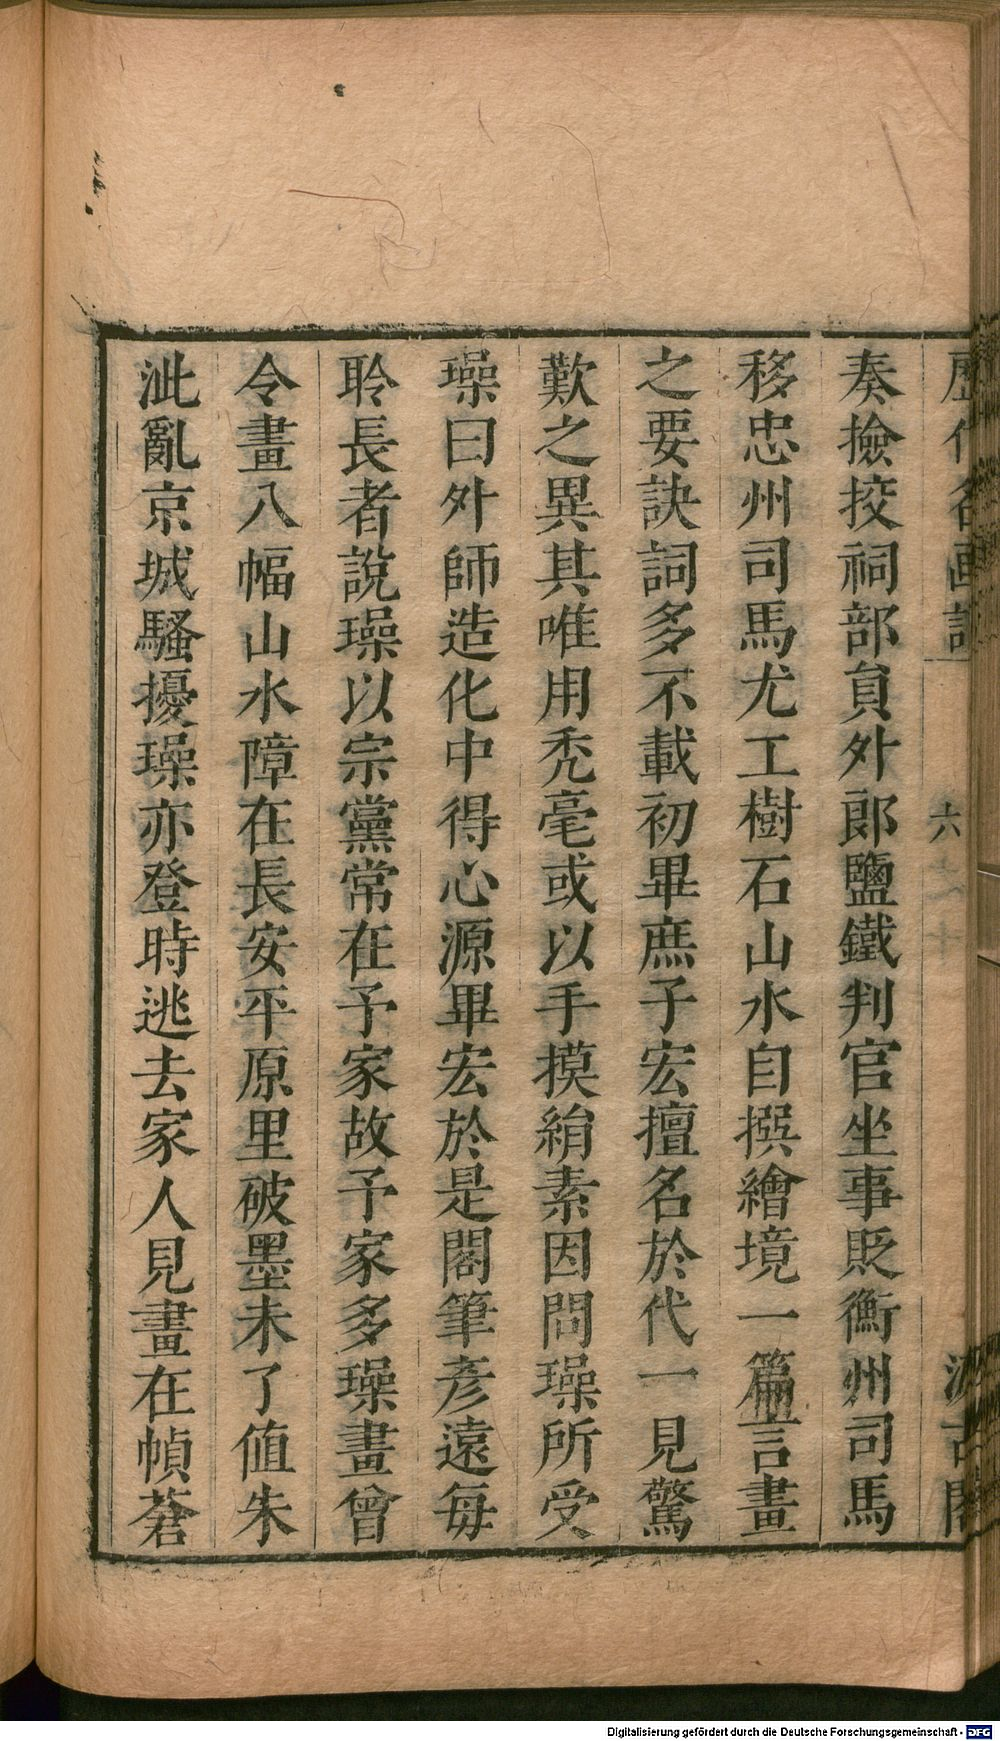 奏撿挍祠部貟外郎鹽鐵判官坐事貶衡州司馬
移忠州司馬尤工樹石山水自撰繪境一篇言畫
之要訣詞多不載初畢庶子宏擅名於代一見驚
歎之異其唯用禿毫或以手摸絹素因問璪所受
璪曰外師造化中得心源畢宏於是閣筆彥遠每
聆長者說璪以宗黨常在予家故予家多璪畫曾
令畫八幅山水障在長安平原里破墨未了值朱
泚亂京城騷擾璪亦登時逃去家人見畫在幀蒼
六
Digitalisierung gefördert durch die Deutsche Forschungsgemeinschaft - DFG